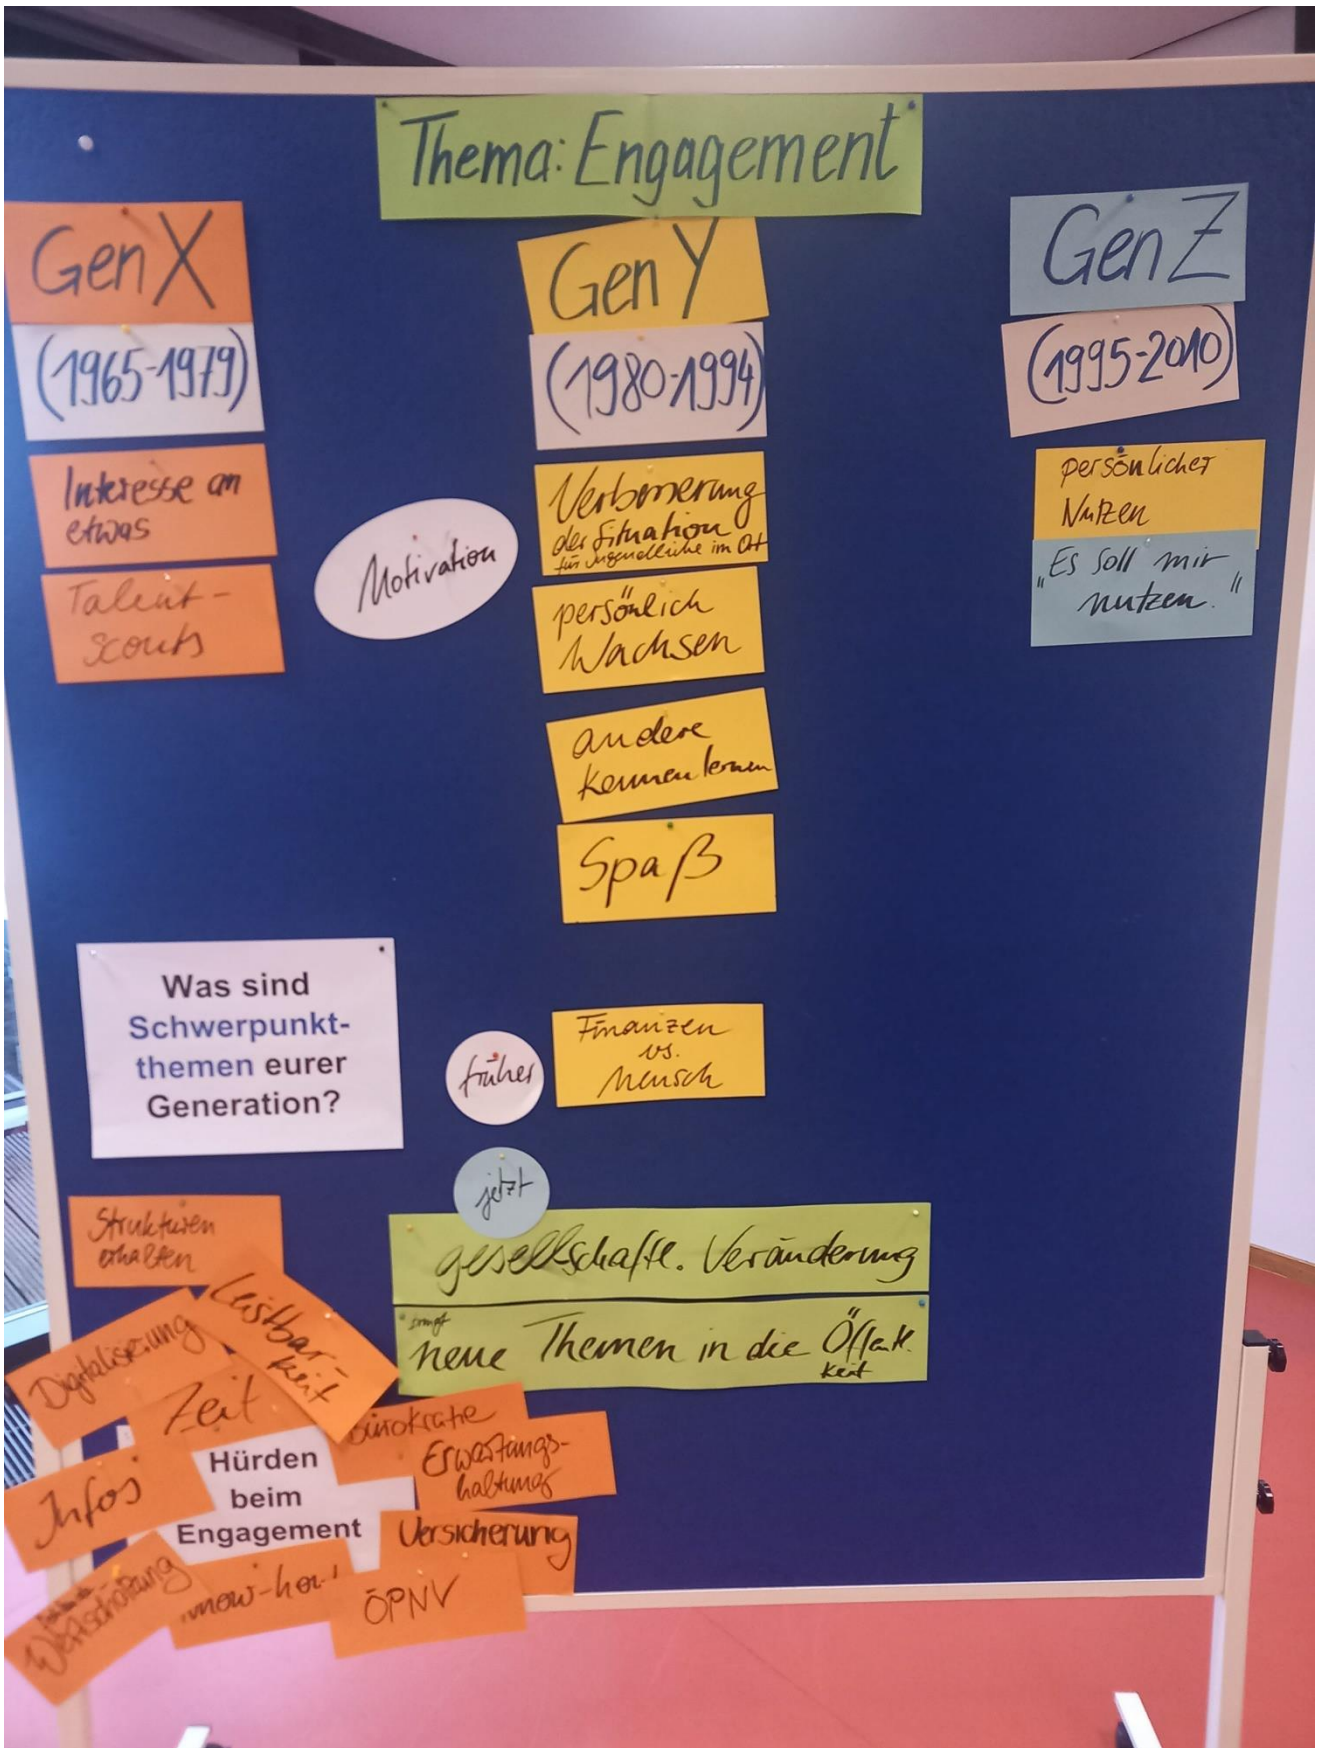 Thema: Engagement
Gen X
(1965-1979)
Interesse an
etwas
Talent-
scouts
Motivation
Gen Y
(1980-1994)
Verbesserung
der Situation
für Jugendliche im Ort
persönlich
Wachsen
andere
kennenlernen
Spaß
Gen Z
(1995-2010)
persönlicher
Nutzen
"Es soll mir
nutzen."
Was sind
Schwerpunkt-
themen eurer
Generation?
früher
Finanzen
vs.
Mensch
jetzt
gesellschaftl. Veränderung
neue Themen in die Öffentl.
keit
Strukturen
erhalten
Leistbar-
keit
Digitalisierung
Zeit
Bürokratie
Erwartungs-
haltung
Infos
Hürden
beim
Engagement
Versicherung
Wertschätzung
know-how
ÖPNV